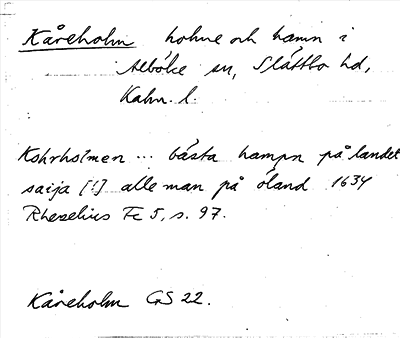 Kåreholm holme och hamn i
Alböke sn, Slättbo hd,
Kalm. l.
Kohrholmen ... bästa hampn på landet
saija [!] alle man på öland 1634
Rhezelius Fc 5, s. 97.
Kåreholm GS 22.